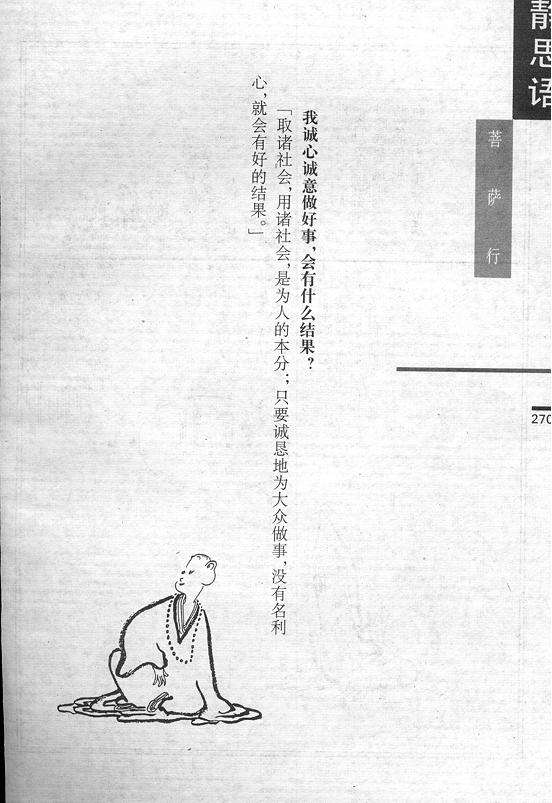 静思语
菩萨行
270
我诚心诚意做好事，会有什么结果？
「取诸社会，用诸社会，是为人的本分；只要诚恳地为大众做事，没有名利
心，就会有好的结果。」